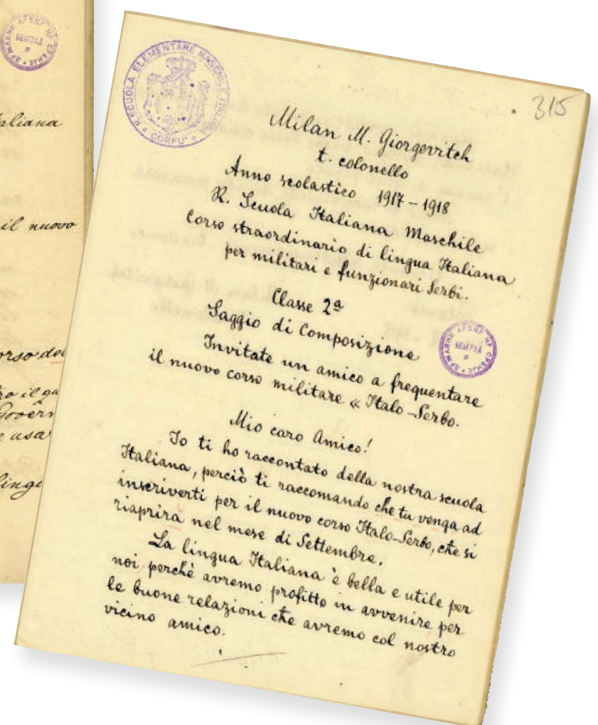 aliana
il nuovo
orso del
ro il ga
Govern
e usa
lingu
R. SCUOLA ELEMENTARE MASCHILE ITALIANA
CORFU'
315
Milan M. Giorgevitch
t. colonello
Anno scolastico 1917-1918
R. Scuola Italiana Maschile
Corso straordinario di lingua Italiana
per militari e funzionari Serbi.
Classe 2ª
Saggio di Composizione
Invitate un amico a frequentare
il nuovo corso militare « Italo-Serbo.
Mio caro Amico!
Io ti ho raccontato della nostra scuola
Italiana, perciò ti raccomando che tu venga ad
inscriverti per il nuovo corso Italo-Serbo, che si
riaprirà nel mese di Settembre.
La lingua Italiana è bella e utile per
noi, perchè avremo profitto in avvenire per
le buone relazioni che avremo col nostro
vicino amico.